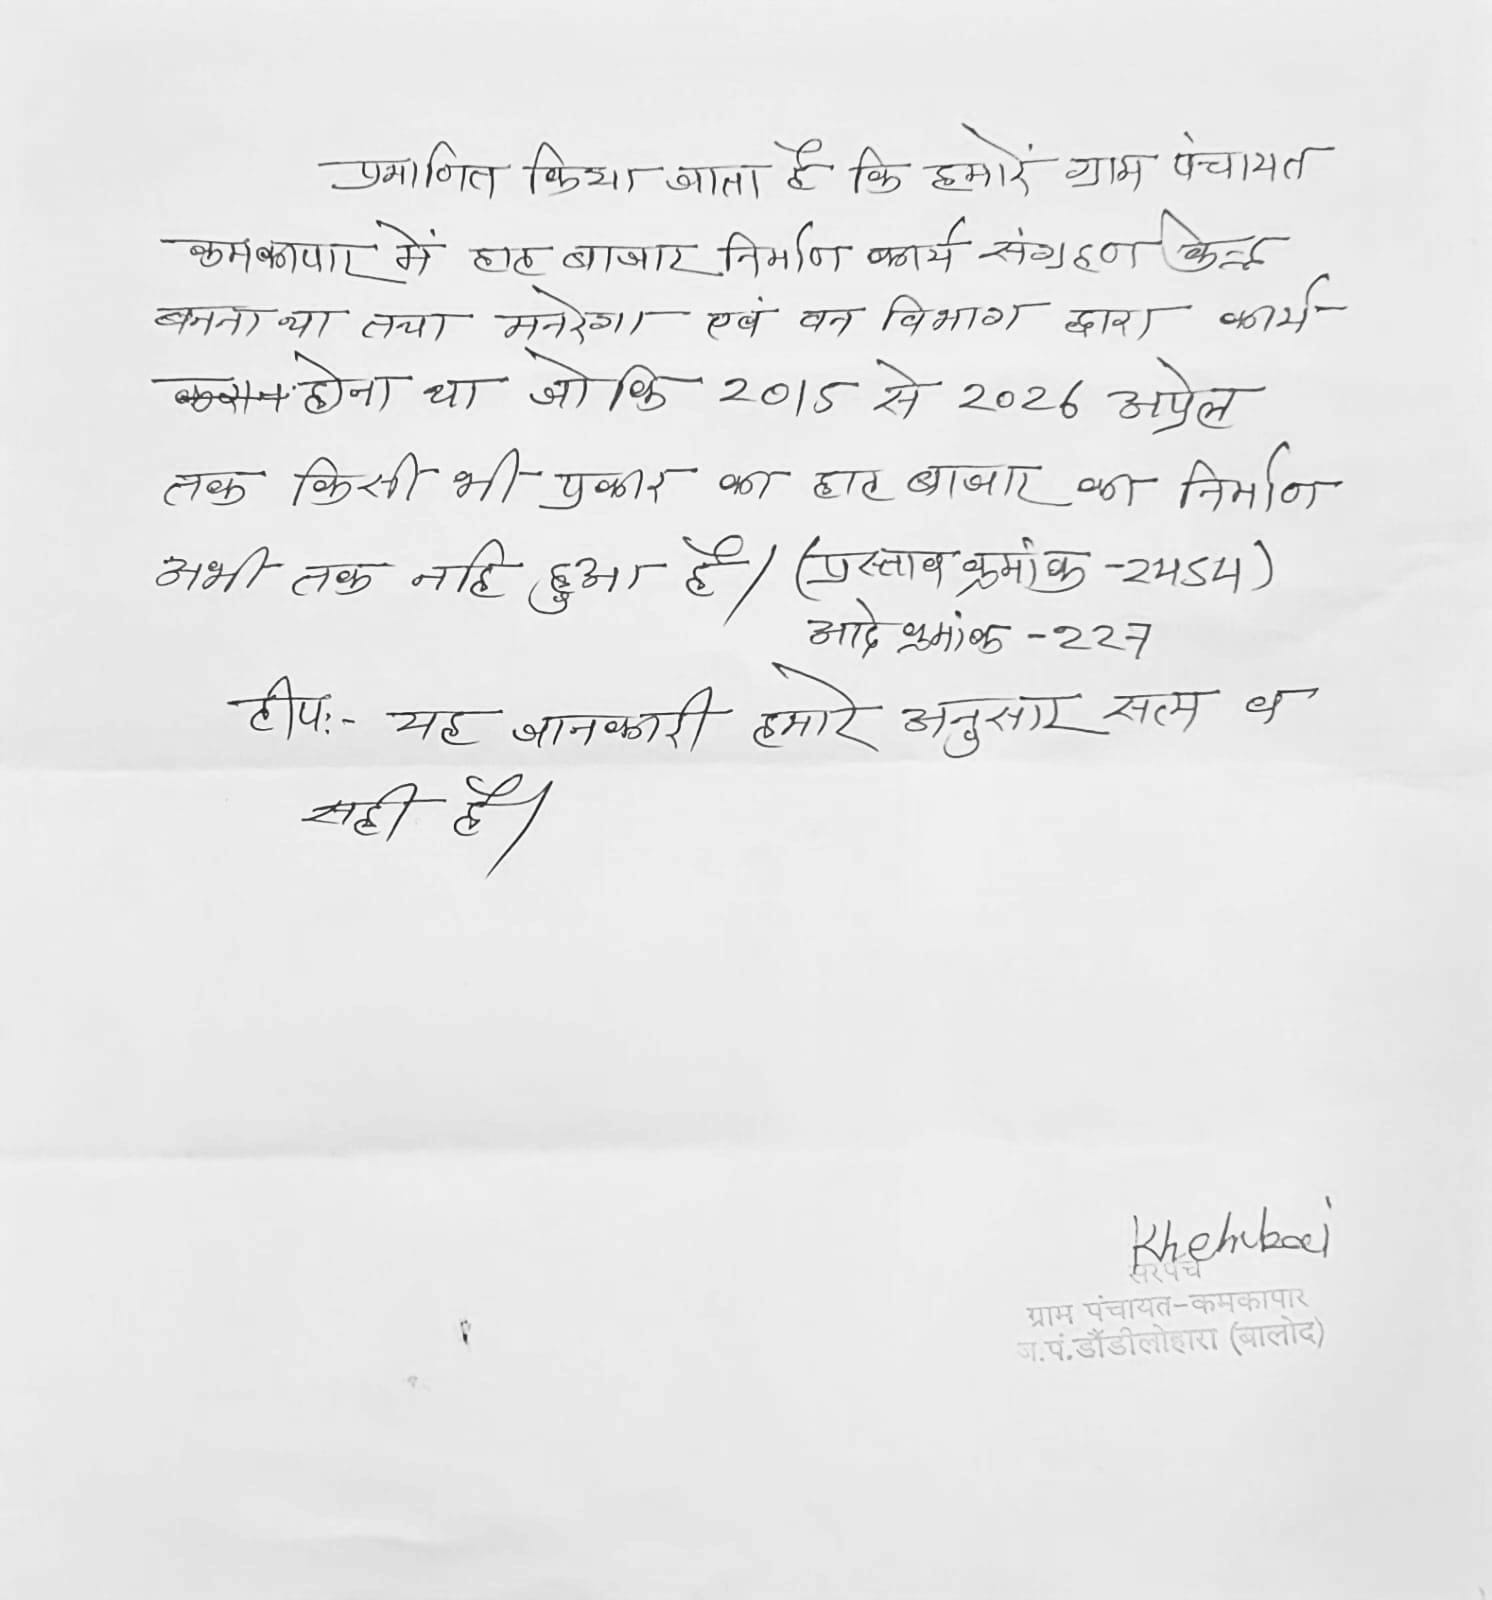 प्रमाणित किया जाता है कि हमारें ग्राम पंचायत
कमकापार में हाट बाजार निर्माण कार्य संग्रहण केन्द्र
बनना था तथा मनरेगा एवं वन विभाग द्वारा कार्य
होना था जो कि 2015 से 2026 अप्रेल
तक किसी भी प्रकार का हाट बाजार का निर्माण
अभी तक नहि हुआ है। (प्रस्ताव क्रमांक -2454)
आदे क्रमांक -227
टीप:- यह जानकारी हमारे अनुसार सत्य व
सही है।
सरपंच
ग्राम पंचायत-कमकापार
ज.पं.डौंडीलोहारा (बालोद)